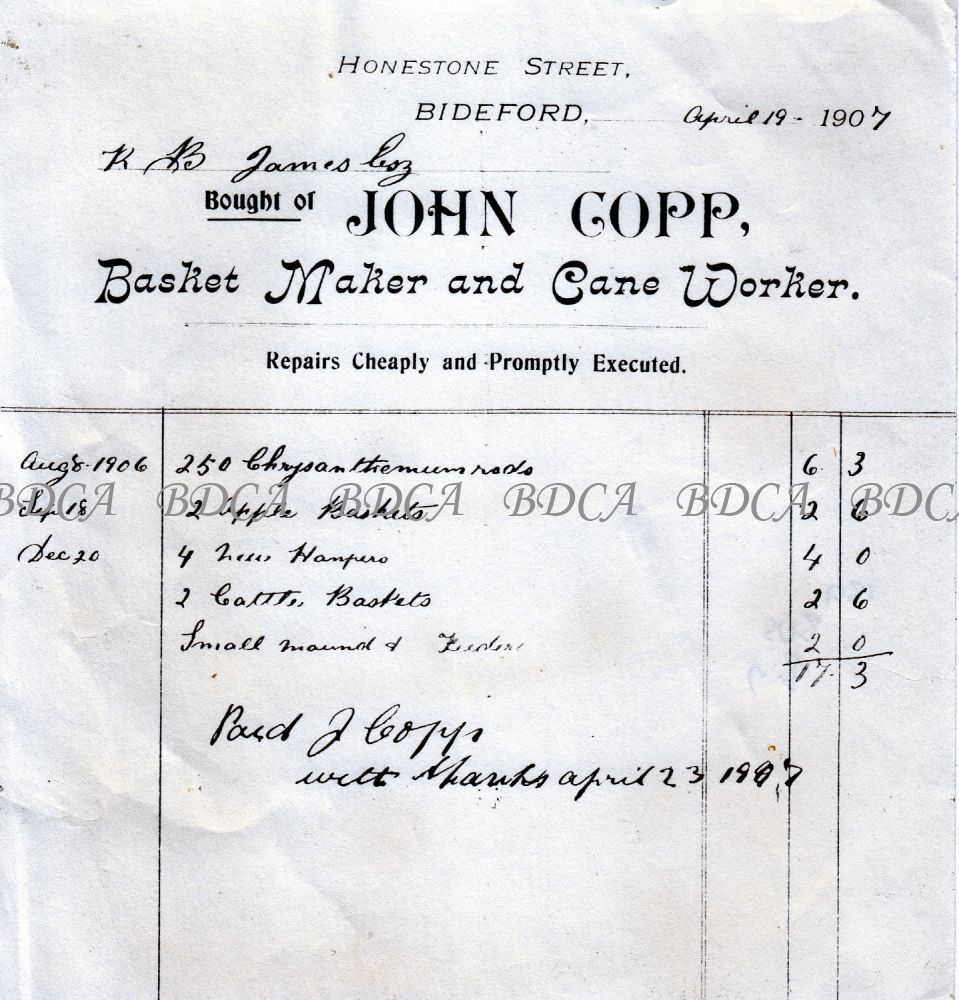 HONESTONE STREET,
BIDEFORD, April 19 - 1907
R B James Esq
Bought of JOHN COPP,
Basket Maker and Cane Worker.
Repairs Cheaply and Promptly Executed.
Aug 8. 1906 250 Chrysanthemum rods 6 3
BDCA BDCA BDCA BDCA BDCA
Sep 18 2 Apple Baskets 2 6
Dec 20 4 New Hampers 4 0
2 Cattle Baskets 2 6
Small maund & 2 0
17. 3
Paid J Copp
with thanks April 23 1907